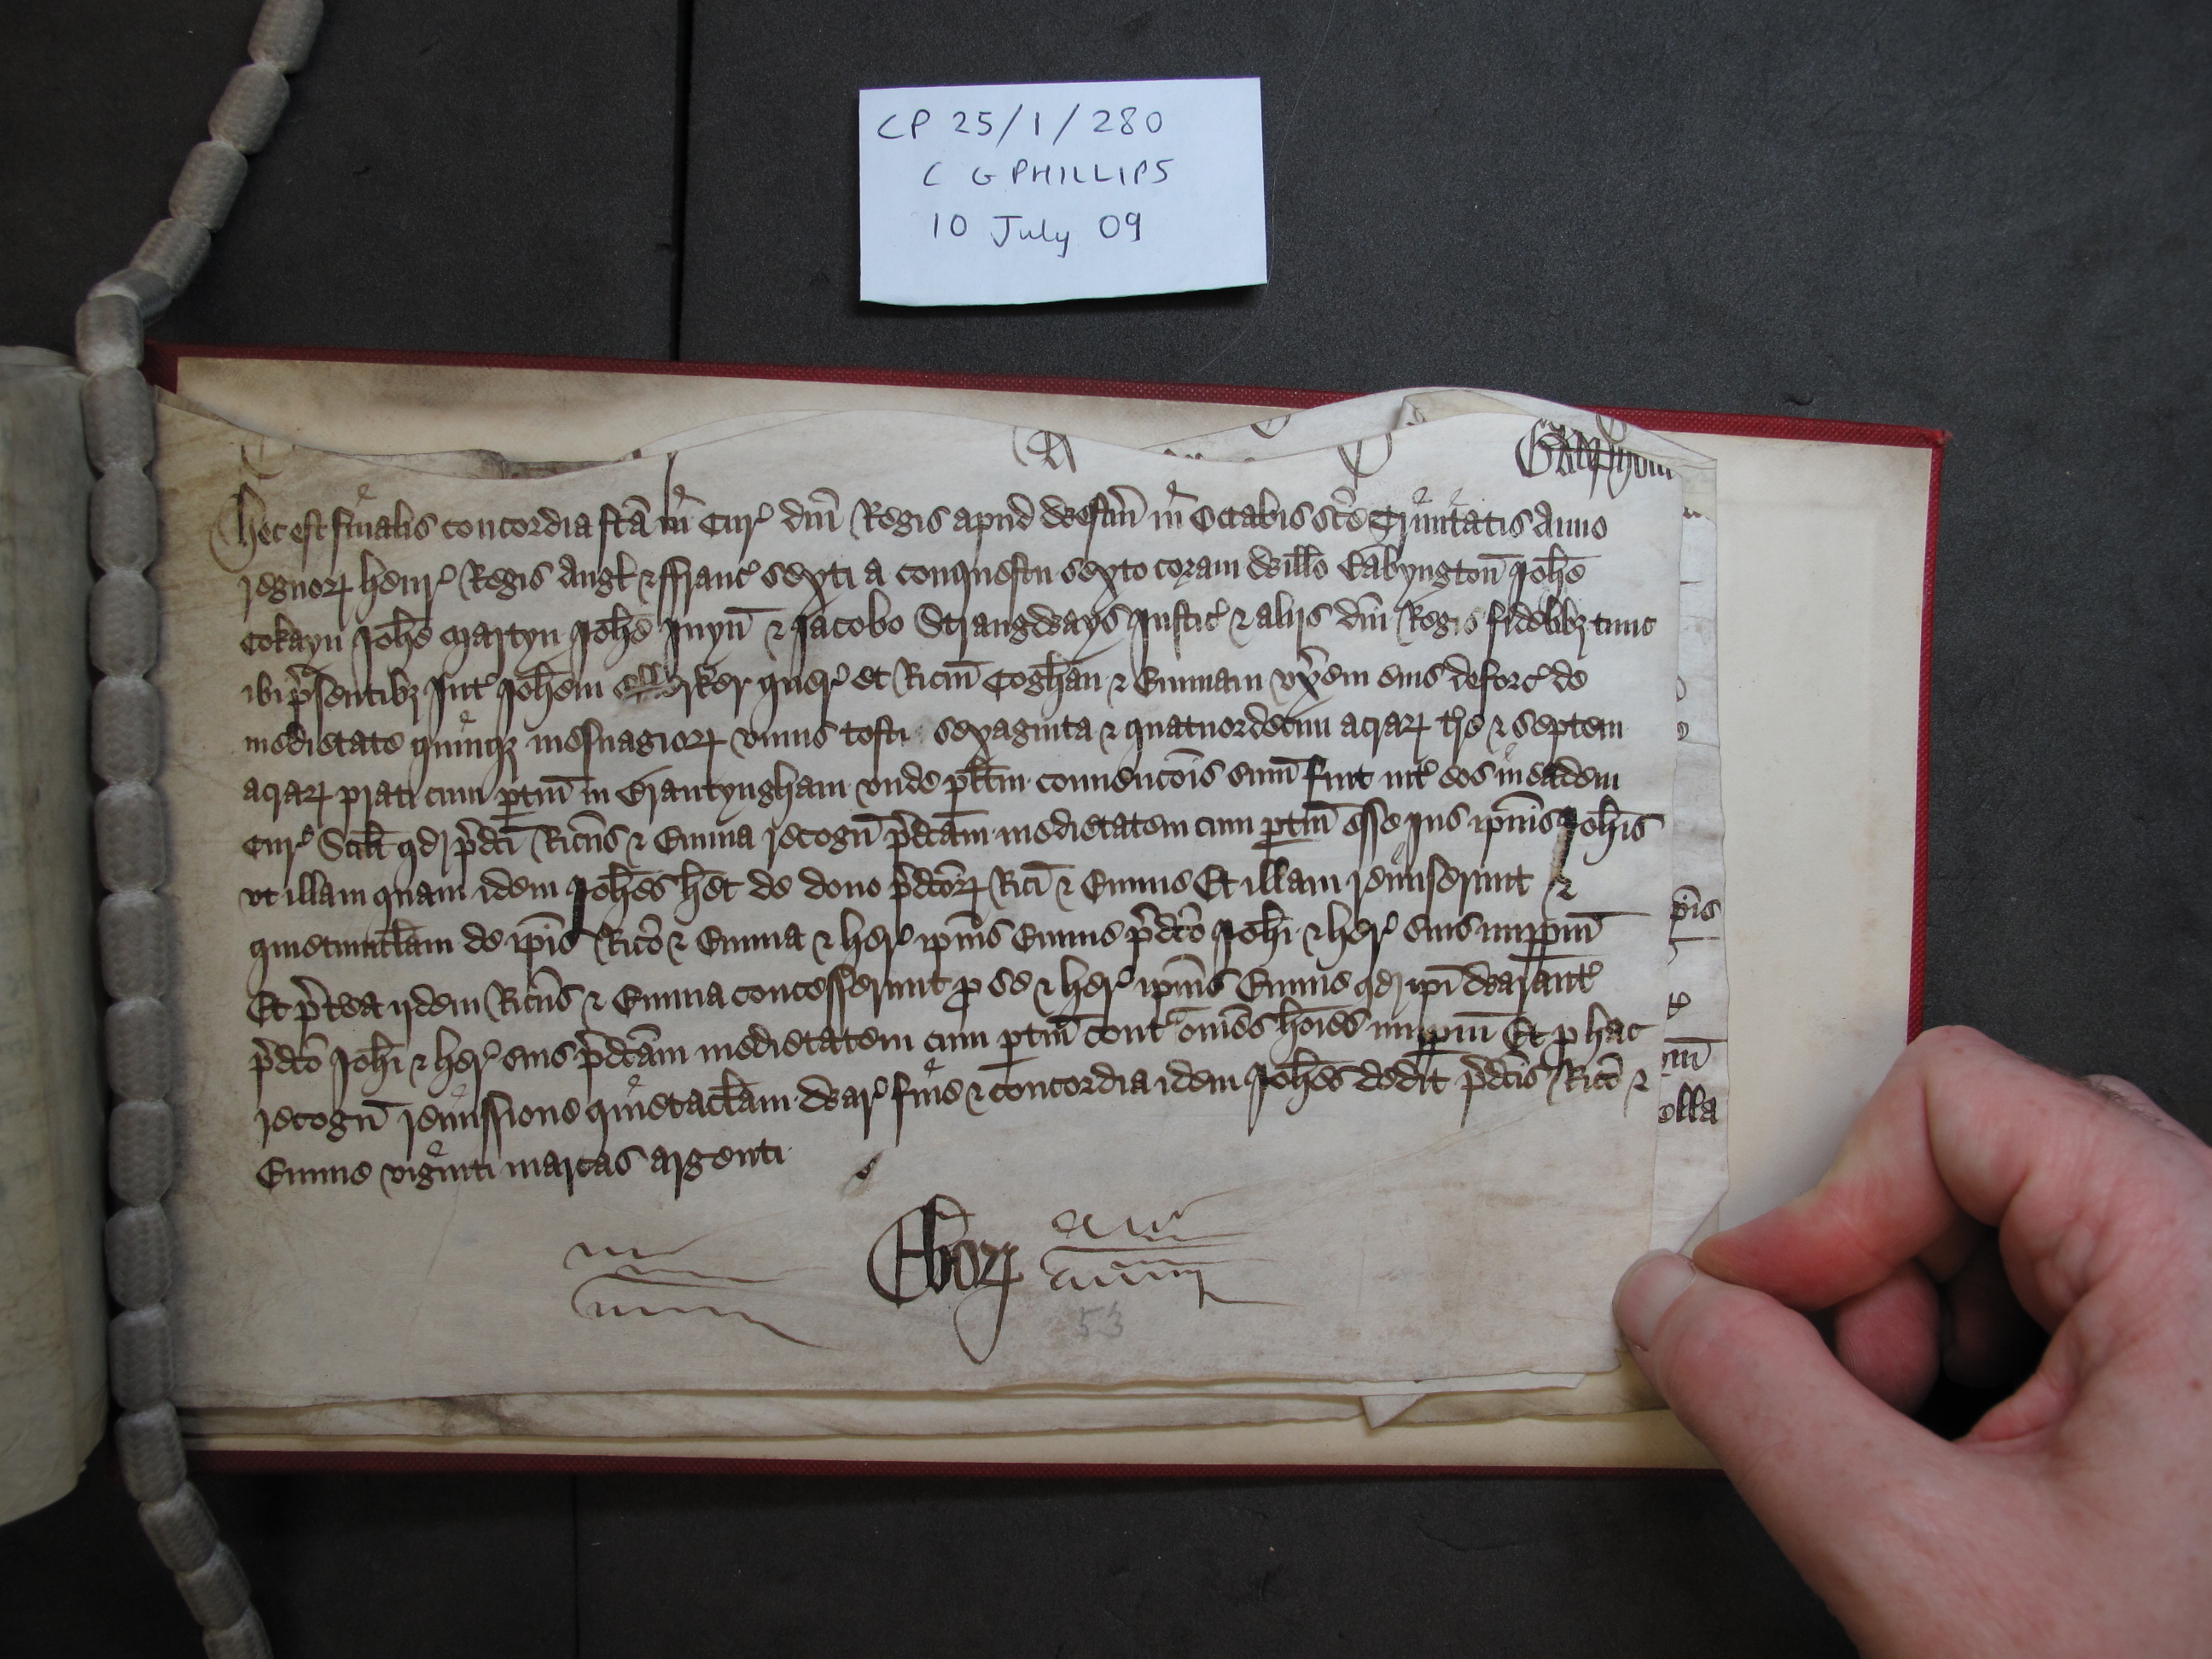 CP 25/1/280
C G PHILLIPS
10 July 09
Hec est finalis concordia fc̄a in Cur' dn̄i Regis apud Westm̄ in Octabis sc̄e Trinitatis Anno
regnoꝝ Henr' Regis Angl' & Franc' sexti a conquestu sexto coram Will̄o Babyngton̄ Joh̄e
Cokayn Joh̄e Martyn Joh̄e Juyn̄ & Jacobo Strangways Justic' & alijs dn̄i Regis fidelibꝫ tunc
ibi p'sentibꝫ Int' Joh̄em quer' et Ricm̄ Cogh̄an & Emmam vx'em eius deforc' de
medietate quinqꝫ mesuagioꝝ vnius tofti sexaginta & quatuordecim acraꝝ t'r̄e & septem
acraꝝ prati cum ptin̄ in Brantyngham vnde pl̄itm conuencōis sum̄ fuit int' eos in eadem
Cur' Scil̄t qd p'dc̄i Ric̄us & Emma recogn̄ p'dc̄am medietatem cum ptin̄ esse Jus ip̄ius Joh̄is
vt illam quam idem Joh̄es h̄et de dono p'dc̄oꝝ Ric̄i & Emme Et illam remiserunt &
quietumcl̄am de ip̄is Ric̄o & Emma & her' ip̄ius Emme p'dc̄o Joh̄i & her' suis imppm̄
Et p't'ea ijdem Ric̄us & Emma concesserunt p se & her' ip̄ius Emme qd ip̄i Warant'
p'dc̄o Joh̄i & her' suis p'dc̄am medietatem cum ptin̄ cont' om̄es hōies imppm̄ Et p hac
recogn̄ remissione quietacl̄am War' fine & concordia idem Joh̄es dedit p'dc̄is Ric̄o &
Emme viginti marcas argenti
Eboꝝ
53
p̄is
olla